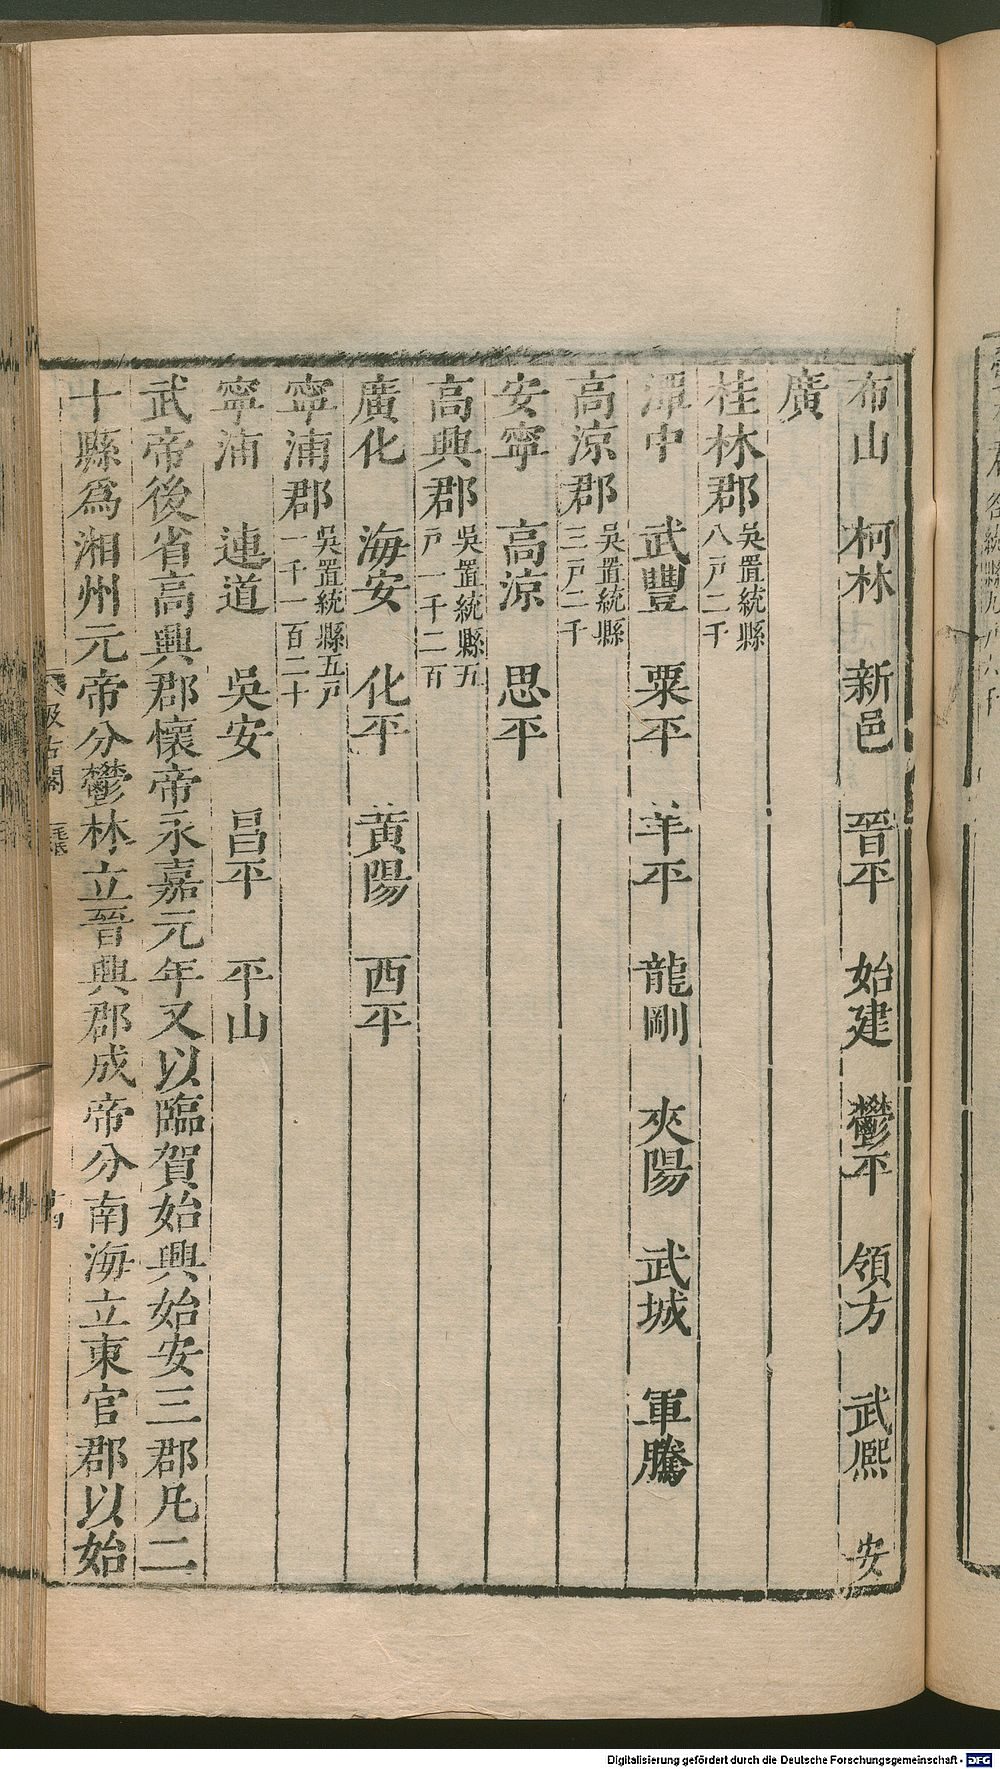 布山　柯林　新邑　晉平　始建　鬱平　領方　武熙　安
廣
桂林郡吳置統縣八戸二千
潭中　武豐　粟平　羊平　龍剛　夾陽　武城　軍騰
高涼郡吳置統縣三戸二千
安寧　高涼　思平
高興郡吳置統縣五戸一千二百
廣化　海安　化平　黄陽　西平
寧浦郡吳置統縣五戸一千一百二十
寧浦　連道　吳安　昌平　平山
武帝後省高興郡懷帝永嘉元年又以臨賀始興始安三郡凡二
十縣爲湘州元帝分鬱林立晉興郡成帝分南海立東官郡以始
Digitalisierung gefördert durch die Deutsche Forschungsgemeinschaft - DFG